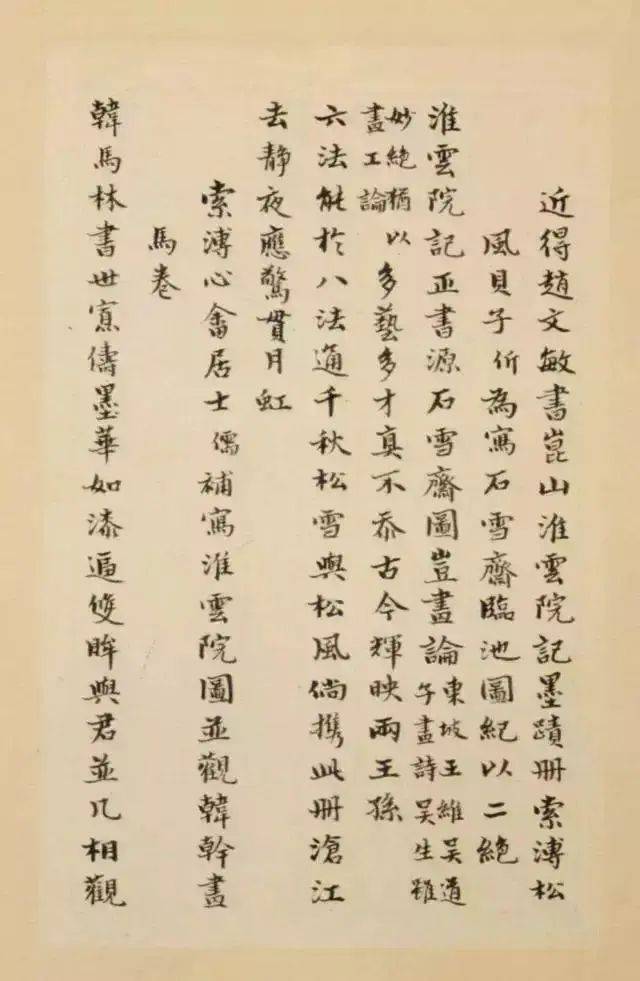 近得趙文敏書崑山淮雲院記墨蹟冊索溥松
風貝子伒為寫石雪齋臨池圖紀以二絶
淮雲院記正書源石雪齋圖豈畫論東坡王維吳道
子畫詩吳生雖
妙絶猶以
畫工論
多藝多才真不忝古今輝映兩王孫
六法能於八法通千秋松雪與松風倘携此冊滄江
去靜夜應驚貫月虹
索溥心畬居士儒補寫淮雲院圖並觀韓幹畫
馬卷
韓馬林書世寡儔墨華如漆逼雙眸與君並几相觀